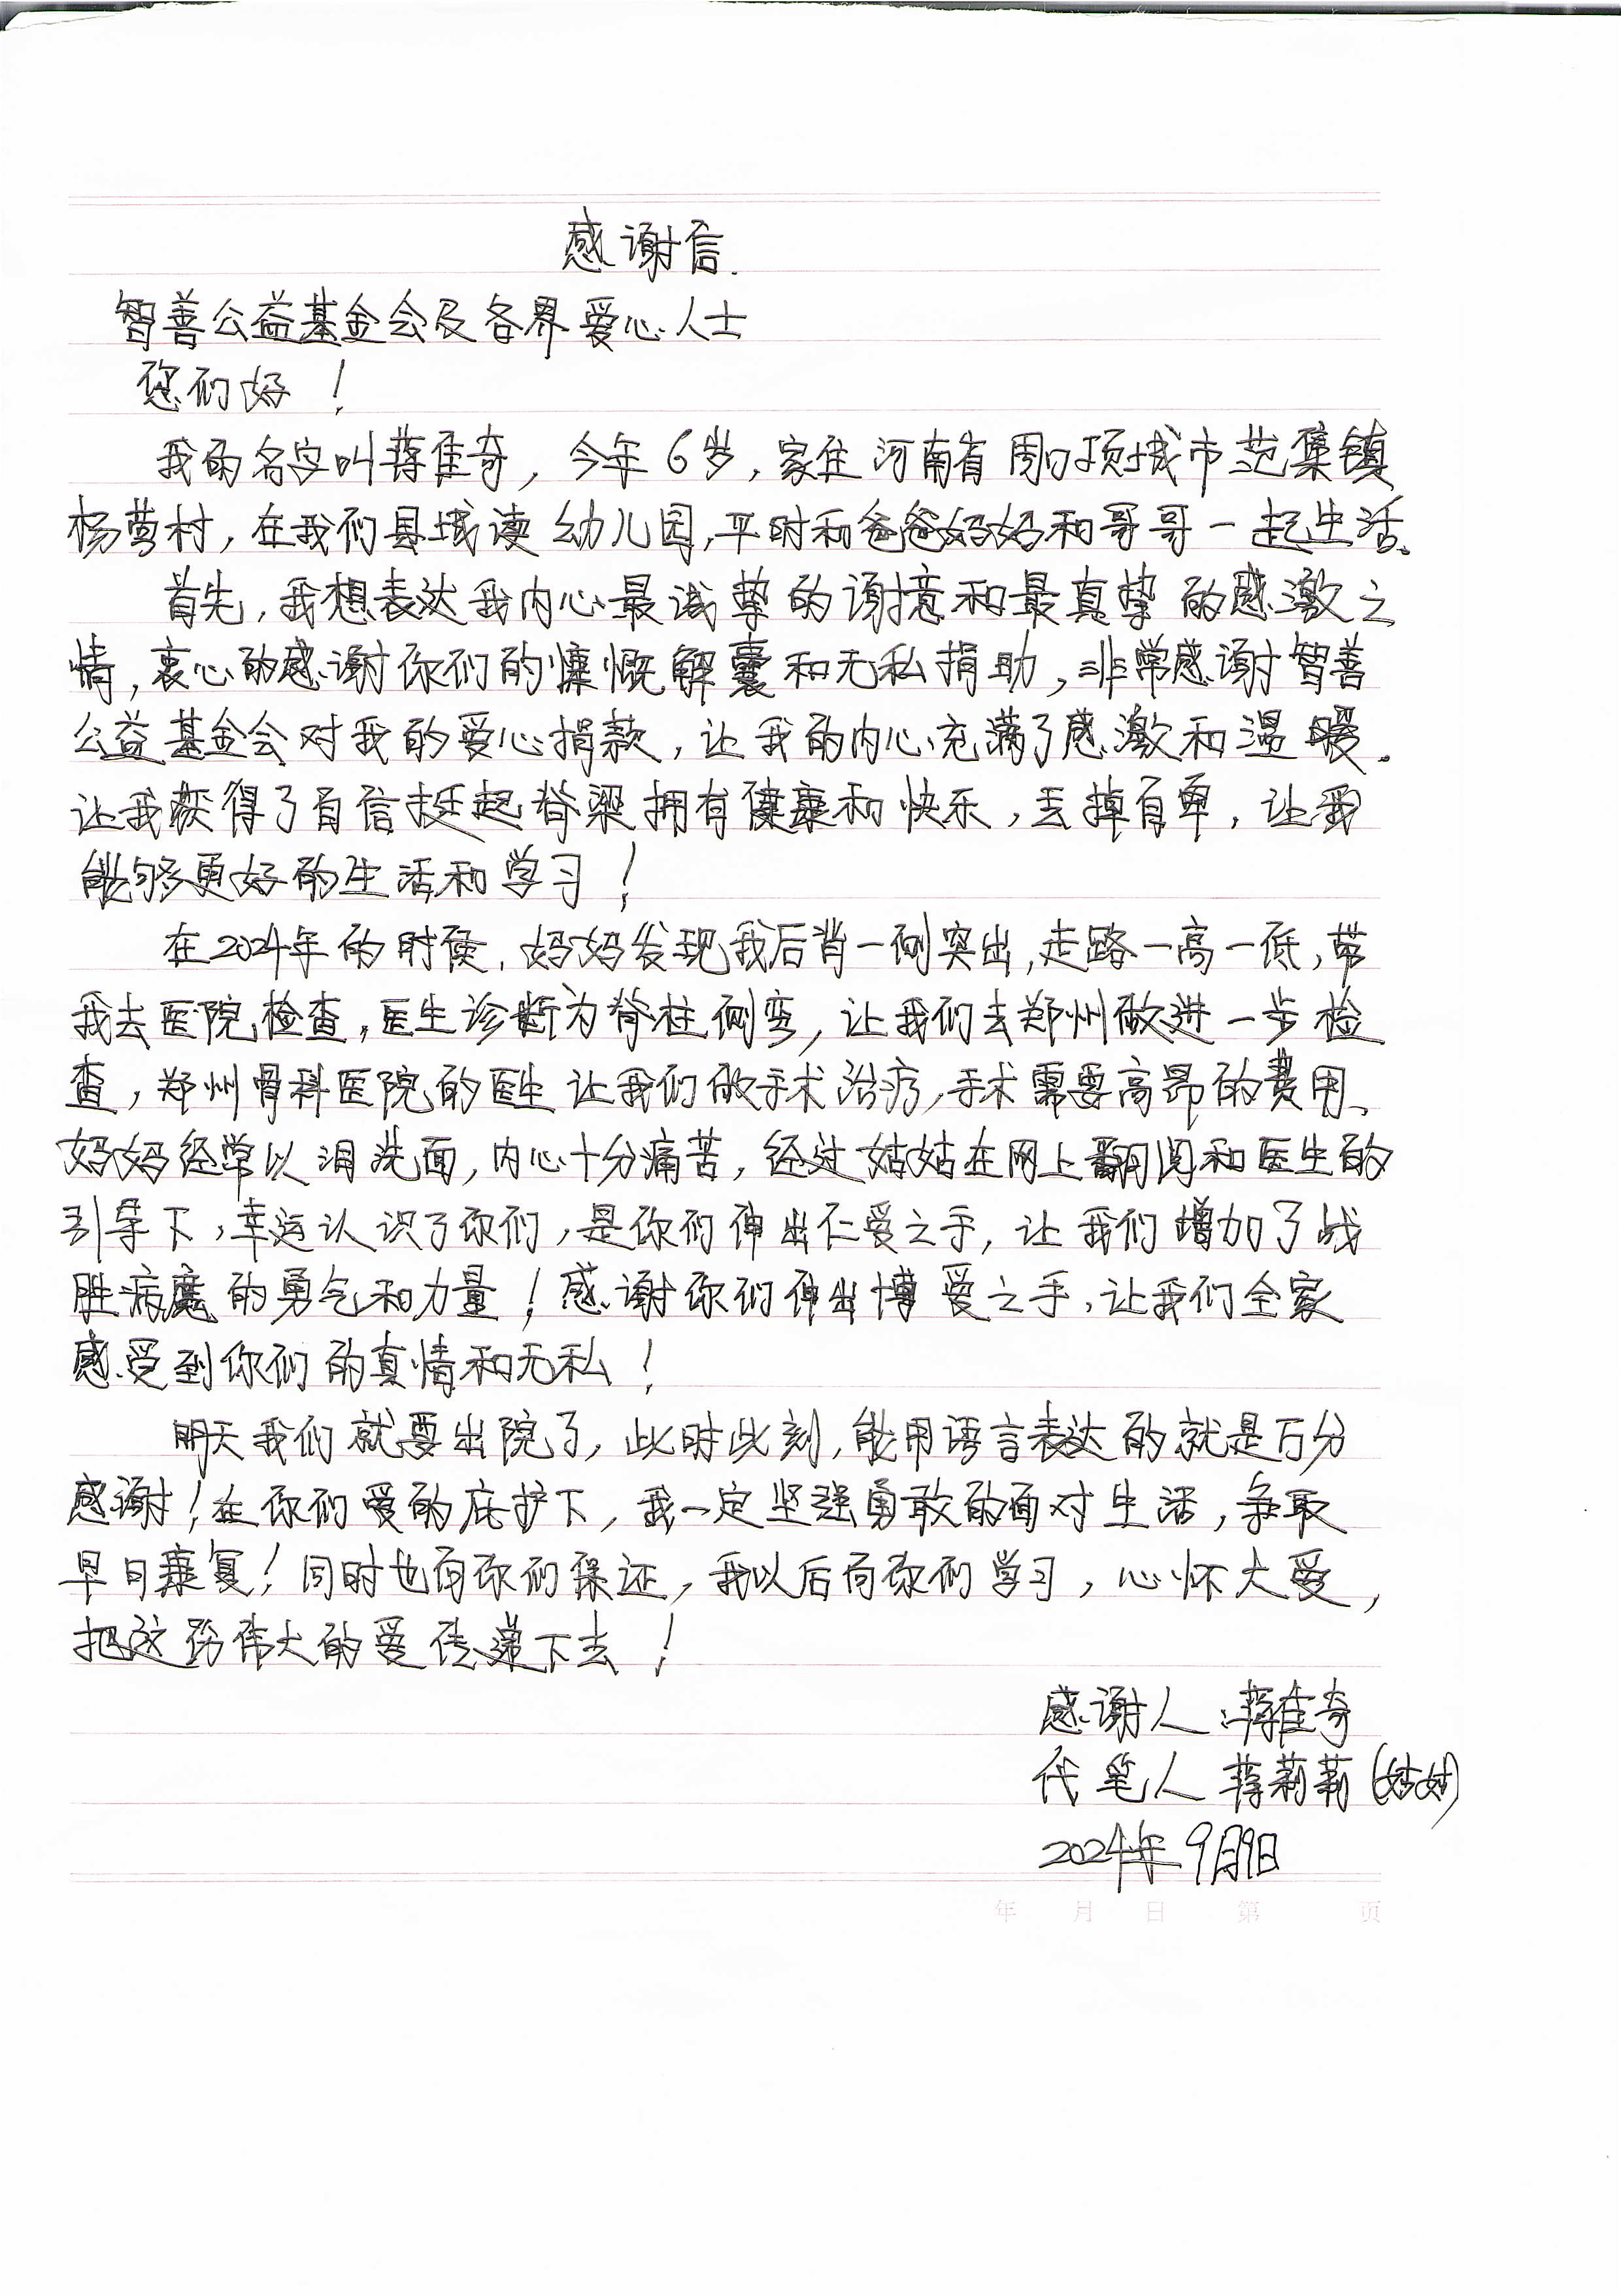 感谢信.
智善公益基金会及各界爱心人士
您们好！
我的名字叫蒋佳奇，今年6岁，家住河南省周口项城市范集镇
杨营村，在我们县城读幼儿园,平时和爸爸妈妈和哥哥一起生活、
首先，我想表达我内心最诚挚的谢意和最真挚的感激之
情，衷心的感谢你们的慷慨解囊和无私捐助，非常感谢智善
公益基金会对我的爱心捐款，让我的内心充满了感激和温暖.
让我获得了自信挺起脊梁拥有健康和快乐，丢掉自卑，让我
能够更好的生活和学习！
在2024年的时候，妈妈发现我后背一侧突出,走路一高一低,带
我去医院检查，医生诊断为脊柱侧弯，让我们去郑州做进一步检
查，郑州骨科医院的医生让我们做手术治疗,手术需要高昂的费用、
妈妈经常以泪洗面，内心十分痛苦，经过姑姑在网上翻阅和医生的
引导下，幸运认识了你们，是你们伸出仁爱之手，让我们增加了战
胜病魔的勇气和力量！感谢你们伸出博爱之手，让我们全家
感受到你们的真情和无私！
明天我们就要出院了，此时此刻，能用语言表达的就是万分
感谢！在你们爱的庇护下，我一定坚强勇敢的面对生活，争取
早日康复！同时也向你们保证，我以后向你们学习，心怀大爱，
把这份伟大的爱传递下去！
感谢人：蒋佳奇
代笔人 蒋莉莉（姑姑）
2024年9月9日
年 月 日 第 页